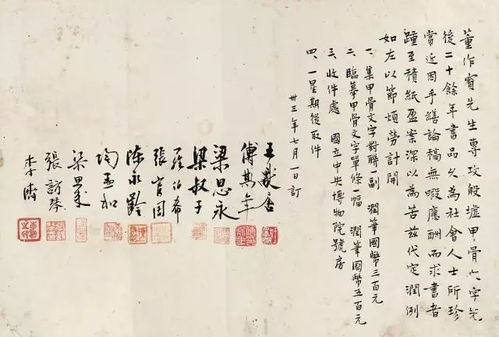 董作賓先生專攻殷墟甲骨文字先
後二十餘年書品久為社會人士所珍
賞近因手繕論稿無暇應酬而求書者
踵至積紙盈案深以為苦茲代定潤例
如左以節煩勞計開
一、集甲骨文字對聯一副 潤筆國幣三百元
二、臨摹甲骨文字單條一幅 潤筆國幣五百元
三、收件處 國立中央博物院號房
四、一星期後取件
卅三年七月一日訂
傅斯年
梁思永
羅伯希
張官周
陳永齡
陶孟和
梁思成
李濟